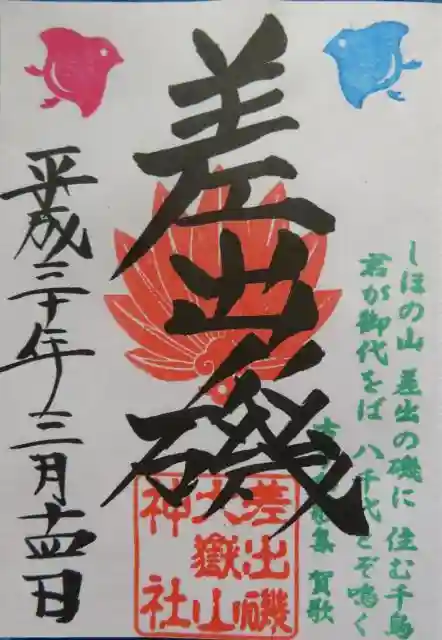 しほの山 差出の磯に 住む千鳥
君が御代をば 八千代とぞ鳴く
賀歌
差出磯
差出磯
大嶽山
神社
平成三十年三月